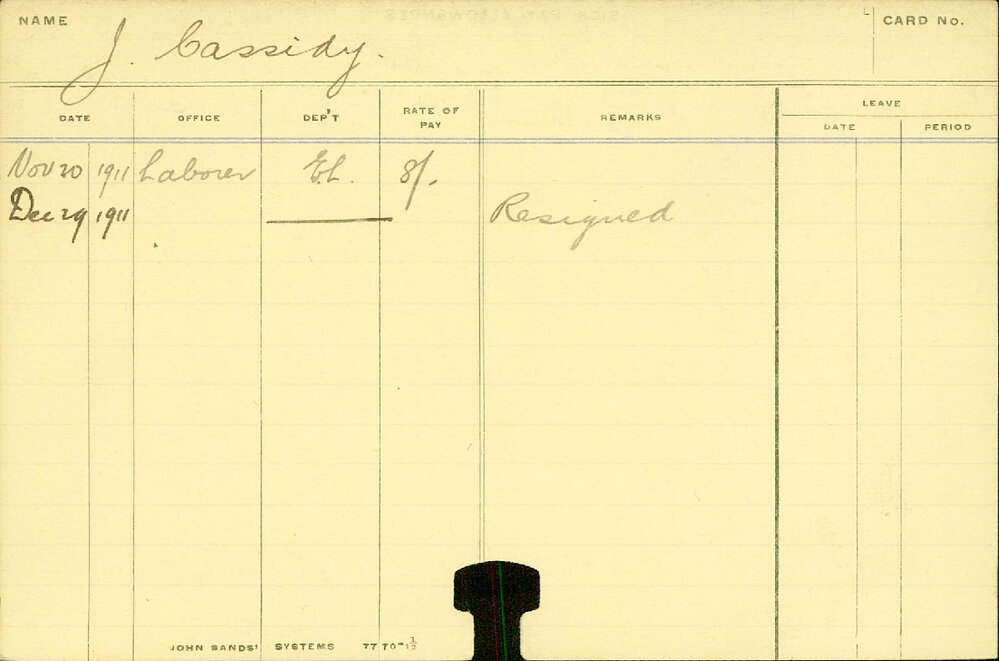 NAME J. Cassidy. CARD No.
DATE OFFICE DEP'T RATE OF PAY REMARKS LEAVE
DATE PERIOD
Nov 20 1911 Laborer E.L. 8/.
Dec 29 1911 Resigned
JOHN SANDS' SYSTEMS